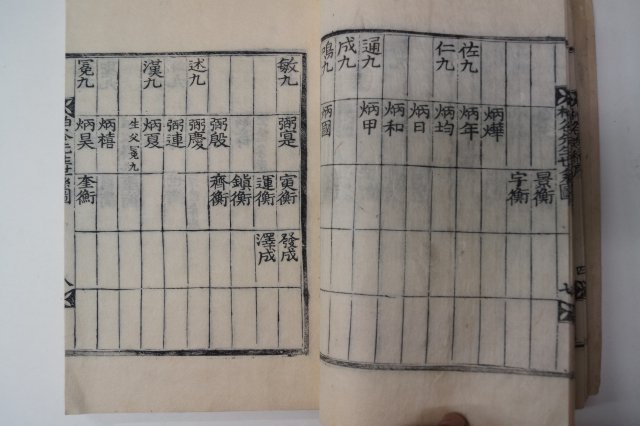 佐九
仁九
通九
成九
鳴九
炳燁
炳年
炳均
炳日
炳和
炳甲
炳國
景衡
宇衡
七
四
敏九
述九
漢九
冕九
弼寔
弼殷
弼慶
弼連
炳夏
生父冕九
炳楷
炳昊
寅衡
運衡
鎭衡
齊衡
奎衡
發成
澤成
八